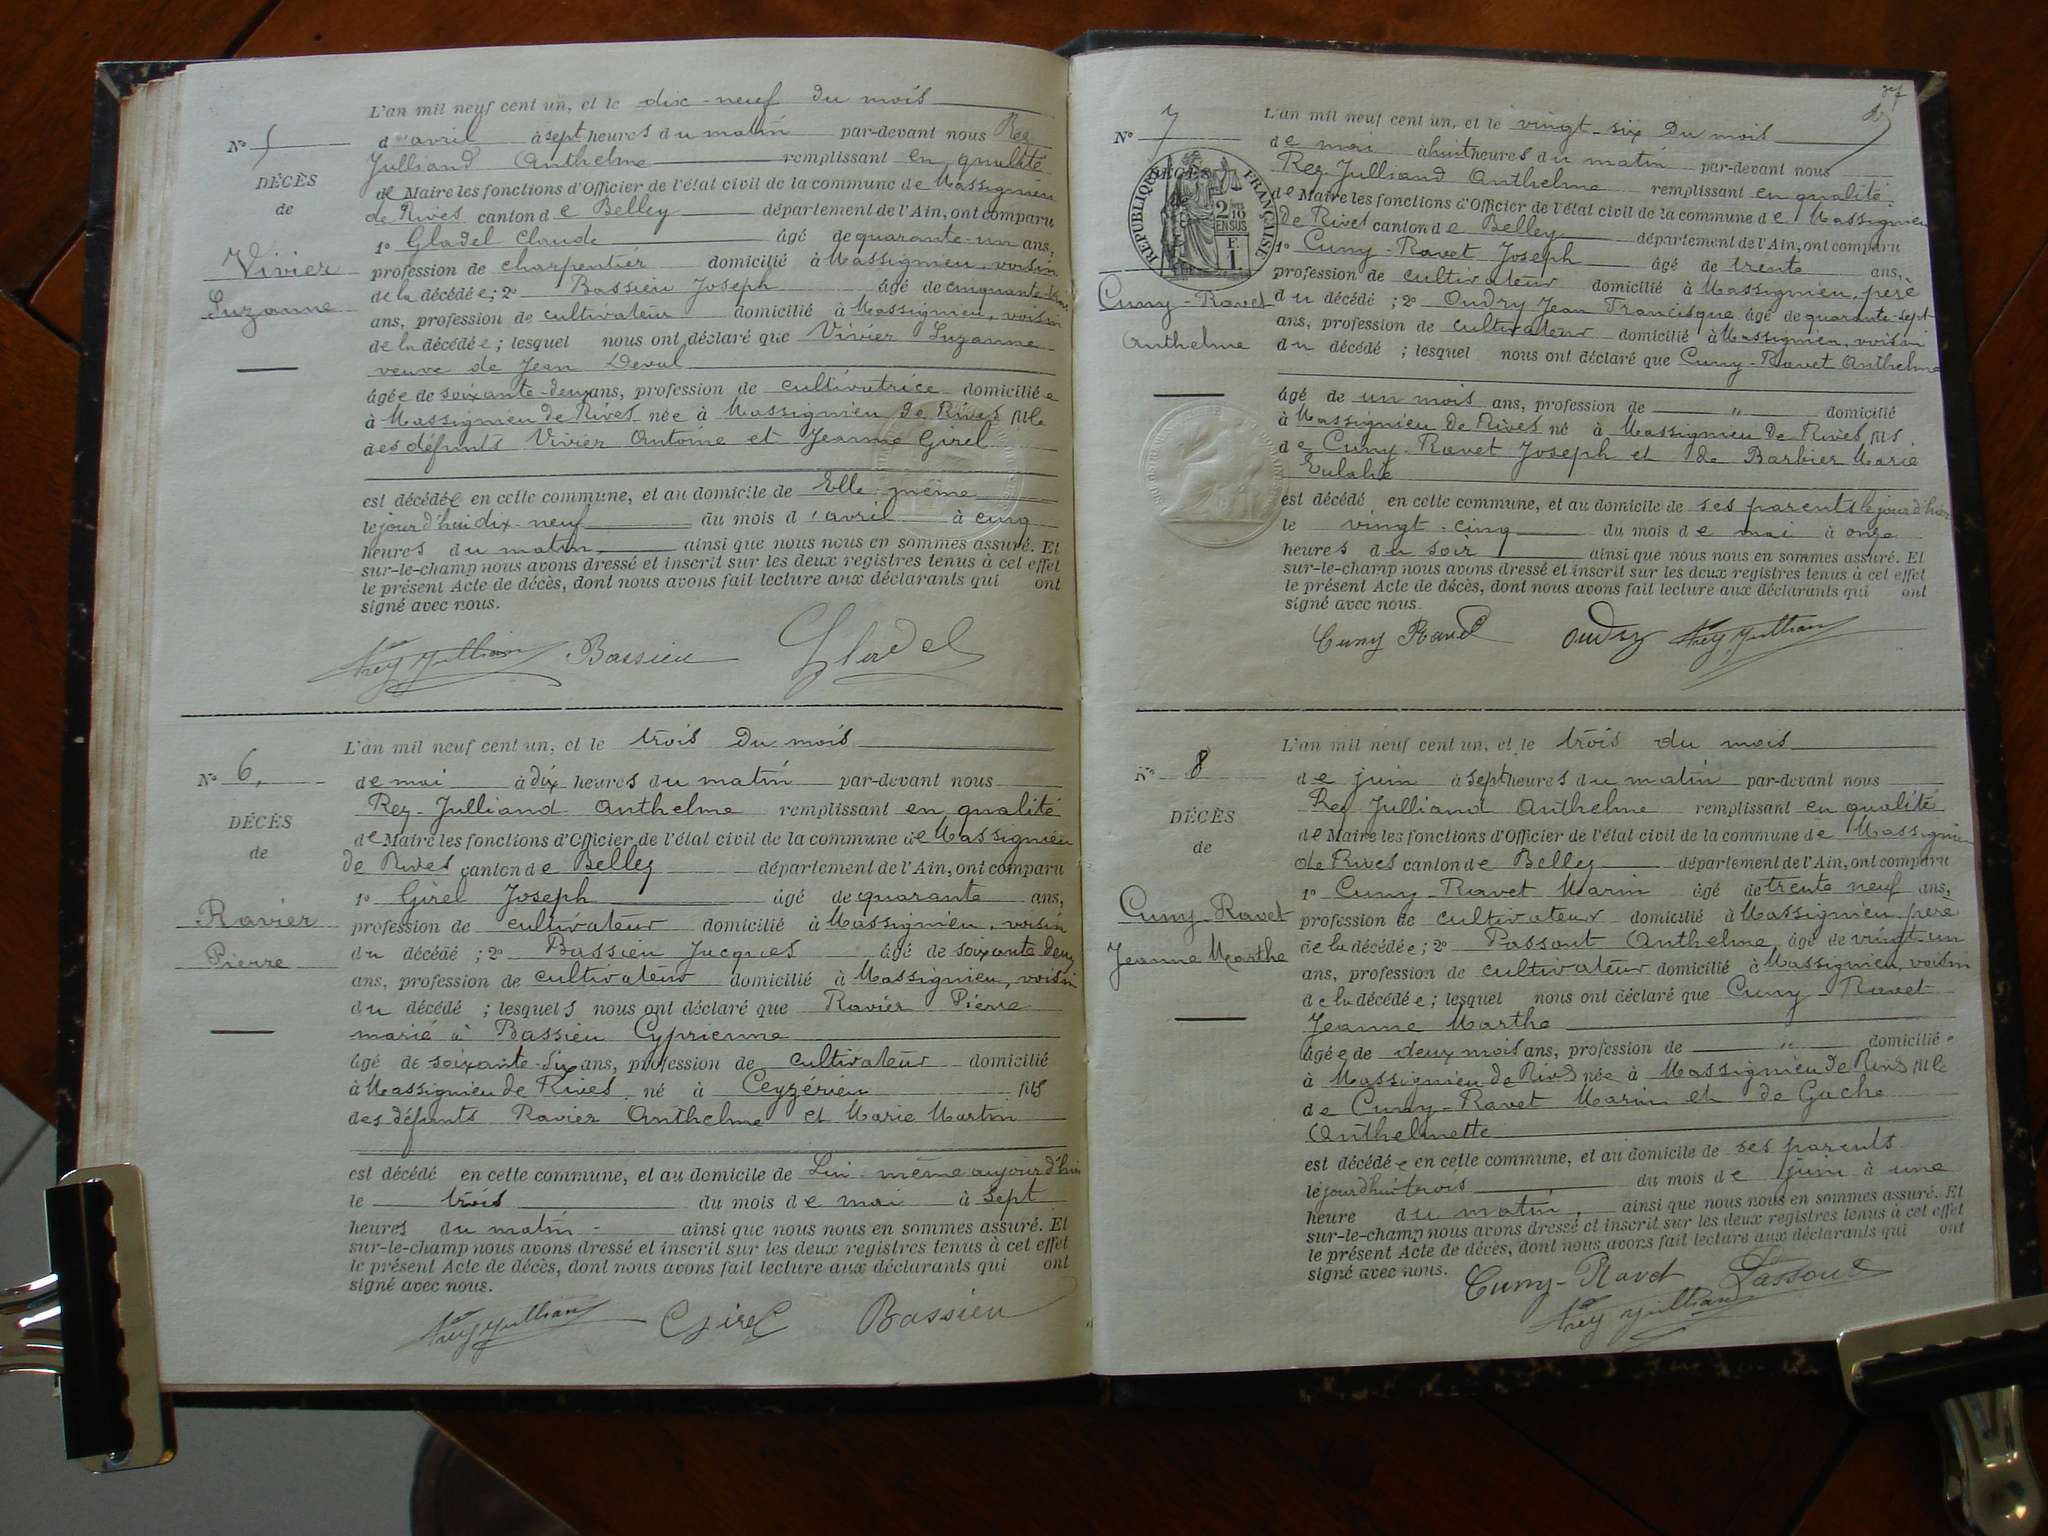 L'an mil neuf cent un, et le dix-neuf du mois
N° 5
d'avril à sept heures du matin par-devant nous Rey
Julliand Anthelme remplissant en qualité
DÉCÈS
de Maire les fonctions d'Officier de l'état civil de la commune de Massignieu
de
de Rives canton de Belley département de l'Ain, ont comparu
1° Gladel Claude âgé de quarante-un ans,
Vivier
profession de charpentier domicilié à Massignieu, voisin
de la décédée; 2° Bassieu Joseph âgé de cinquante-
Suzanne
ans, profession de cultivateur domicilié à Massignieu, voisin
de la décédée; lesquel nous ont déclaré que Vivier Suzanne
veuve de Jean Deval
âgée de soixante-deux ans, profession de cultivatrice domiciliée
à Massignieu de Rives née à Massignieu de Rives fille
des défunts Vivier Antoine et Jeanne Girel
est décédée en cette commune, et au domicile de Elle même
le jourd'hui dix-neuf du mois d'avril à cinq
heures du matin ainsi que nous nous en sommes assuré. Et
sur-le-champ nous avons dressé et inscrit sur les deux registres tenus à cet effet
le présent Acte de décès, dont nous avons fait lecture aux déclarants qui ont
signé avec nous.
Rey Julliand Bassieu Gladel
L'an mil neuf cent un, et le trois du mois
N° 6.
de mai à dix heures du matin par-devant nous
Rey-Julliand Anthelme remplissant en qualité
DÉCÈS
de Maire les fonctions d'Officier de l'état civil de la commune de Massignieu
de
de Rives canton de Belley département de l'Ain, ont comparu
1° Girel Joseph âgé de quarante ans,
Ravier
profession de cultivateur domicilié à Massignieu, voisin
du décédé; 2° Bassieu Jacques âgé de soixante deux
Pierre
ans, profession de cultivateur domicilié à Massignieu, voisin
du décédé; lesquels nous ont déclaré que Ravier Pierre
marié à Bassieu Cyprienne
âgé de soixante-dix ans, profession de cultivateur domicilié
à Massignieu de Rives né à Ceyzérieu fils
des défunts Ravier Anthelme et Marie Martin
est décédé en cette commune, et au domicile de Lui-même aujourd'hui
le trois du mois de mai à sept
heures du matin ainsi que nous nous en sommes assuré. Et
sur-le-champ nous avons dressé et inscrit sur les deux registres tenus à cet effet
le présent Acte de décès, dont nous avons fait lecture aux déclarants qui ont
signé avec nous.
Rey Julliand Girel Bassieu
L'an mil neuf cent un, et le vingt-six du mois
N° 7
de mai à huit heures du matin par-devant nous
Rey Julliand Anthelme remplissant en qualité
DÉCÈS
de
RÉPUBLIQUE FRANÇAISE
2/10 EN SUS
F. 1
de Maire les fonctions d'Officier de l'état civil de la commune de Massignieu
de Rives canton de Belley département de l'Ain, ont comparu
1° Cuny-Ravet Joseph âgé de trente ans,
profession de cultivateur domicilié à Massignieu, père
Cuny-Ravet
du décédé; 2° Oudry Jean Francisque âgé de quarante-sept
ans, profession de cultivateur domicilié à Massignieu, voisin
Anthelme
du décédé; lesquel nous ont déclaré que Cuny-Ravet Anthelme
âgé de un mois ans, profession de " domicilié
à Massignieu de Rives né à Massignieu de Rives fils
de Cuny-Ravet Joseph et de Barbier Marie
Eulalie
est décédé en cette commune, et au domicile de ses parents le jour d'hier
le vingt-cinq du mois de mai à onze
heures du soir ainsi que nous nous en sommes assuré. Et
sur-le-champ nous avons dressé et inscrit sur les deux registres tenus à cet effet
le présent Acte de décès, dont nous avons fait lecture aux déclarants qui ont
signé avec nous.
Cuny Ravet Oudry Rey Julliand
L'an mil neuf cent un, et le trois du mois
N° 8
de juin à sept heures du matin par-devant nous
Rey Julliand Anthelme remplissant en qualité
DÉCÈS
de Maire les fonctions d'Officier de l'état civil de la commune de Massignieu
de
de Rives canton de Belley département de l'Ain, ont comparu
1° Cuny-Ravet Marin âgé de trente neuf ans,
Cuny-Ravet
profession de cultivateur domicilié à Massignieu père
de la décédée; 2° Passout Anthelme âgé de vingt-un
Jeanne Marthe
ans, profession de cultivateur domicilié à Massignieu, voisin
de la décédée; lesquel nous ont déclaré que Cuny-Ravet
Jeanne Marthe
âgée de deux mois ans, profession de " domiciliée
à Massignieu de Rives née à Massignieu de Rives fille
de Cuny-Ravet Marin et de Gache
Anthelmette
est décédée en cette commune, et au domicile de ses parents
le jourd'hui trois du mois de juin à une
heure du matin, ainsi que nous nous en sommes assuré. Et
sur-le-champ nous avons dressé et inscrit sur les deux registres tenus à cet effet
le présent Acte de décès, dont nous avons fait lecture aux déclarants qui ont
signé avec nous. Cuny-Ravet Passout
Rey Julliand